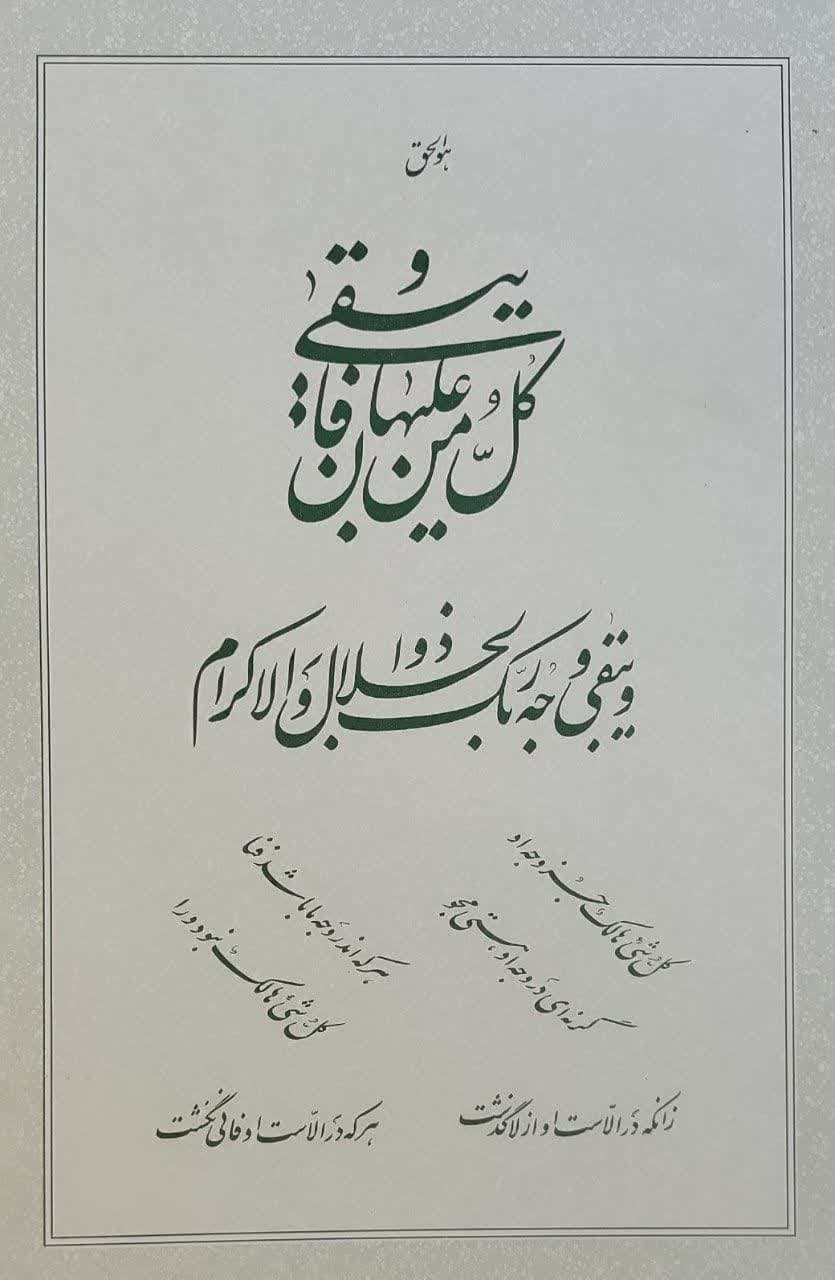 هوالحق
و یبقی
کُلُّ من علیها فان
و یبقی وجه ربک ذوالجلال والاکرام
کل شیءٍ هالک جُز وجه او
گر نه‌ای در وجه او هستی مجو
هر که اندر وجه ما باشد فنا
کل شیءٍ هالک نبود ورا
زانکه در الّاست او از لا گذشت
هر که در الّاست او فانی نگشت